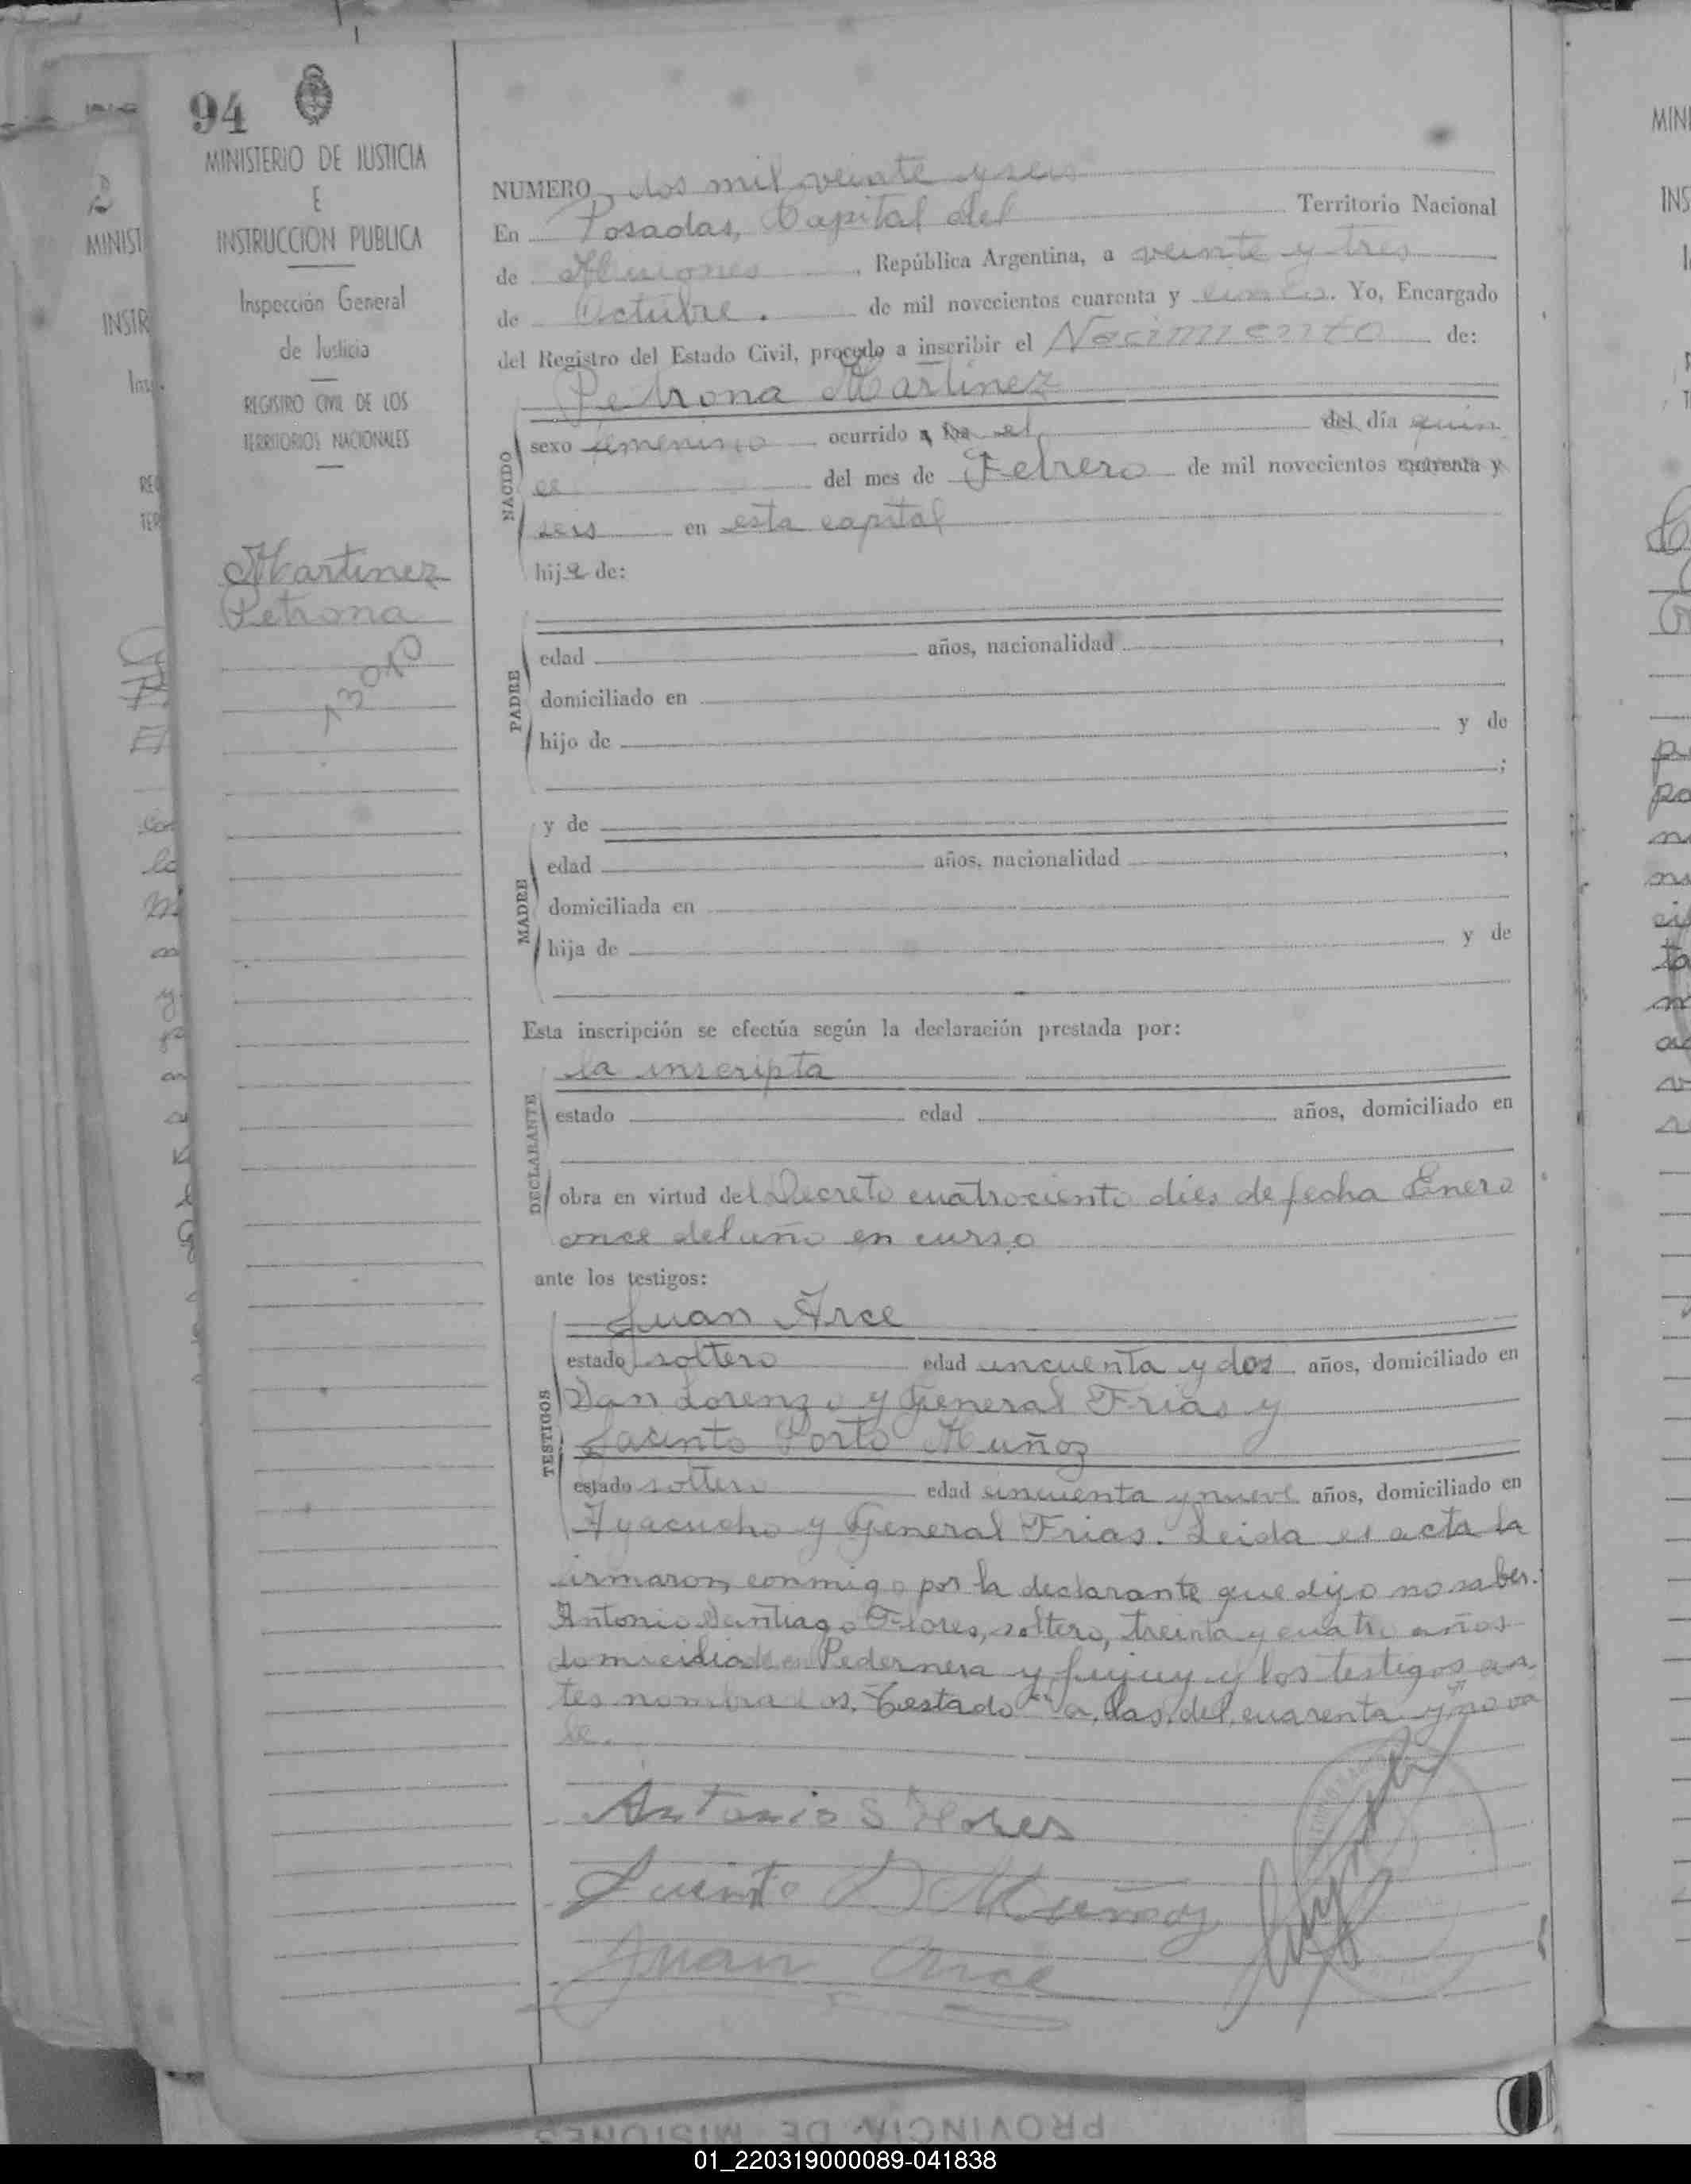 94
MINISTERIO DE JUSTICIA
E
INSTRUCCION PUBLICA
Inspección General
de Justicia
REGISTRO CIVIL DE LOS
TERRITORIOS NACIONALES
Martinez
Petrona
NUMERO dos mil veinte y seis
En Posadas, Capital del Territorio Nacional
de Misiones, República Argentina, a veinte y tres
de Octubre. de mil novecientos cuarenta y cinco. Yo, Encargado
del Registro del Estado Civil, procedo a inscribir el Nacimiento de:
Petrona Martinez
NACIDO
sexo femenino ocurrido a las el del día quin
ce del mes de Febrero de mil novecientos cuarenta y
seis en esta capital
hija de:
PADRE
edad años, nacionalidad ,
domiciliado en
hijo de y de
;
y de
MADRE
edad años, nacionalidad ,
domiciliada en
hija de y de
Esta inscripción se efectúa según la declaración prestada por:
la inscripta
DECLARANTE
estado edad años, domiciliado en
obra en virtud del Decreto cuatrociento dies de fecha Enero
once del año en curso
ante los testigos:
Juan Arce
TESTIGOS
estado soltero edad cincuenta y dos años, domiciliado en
San Lorenzo y General Frias y
Jacinto Porto Muñoz
estado soltero edad cincuenta y nueve años, domiciliado en
Ayacucho y General Frias. Leida el acta la
firmaron conmigo por la declarante que dijo no saber.
Antonio Santiago Flores, soltero, treinta y cuatro años
domiciliado en Pedernera y Jujuy y los testigos an
tes nombrados. Testado "a, las, del, cuarenta y" no va
le.
Antonio S Flores
Jacinto P Muñoz
Juan Arce
PROVINCIA DE MISIONES
01_220319000089-041838